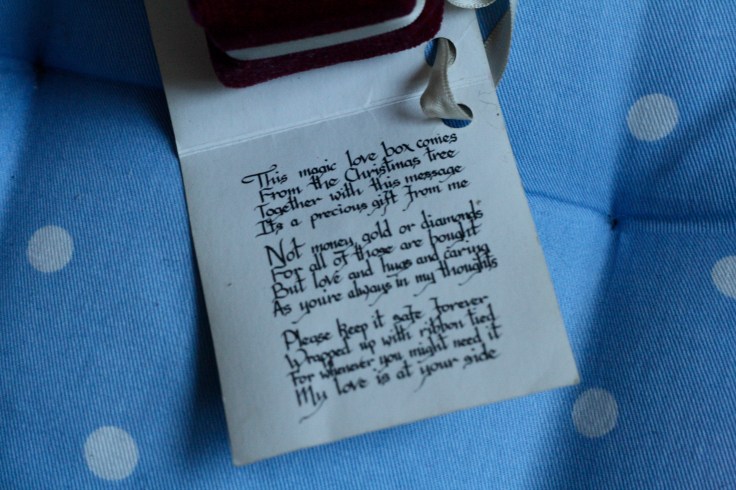 This magic love box comes
From the Christmas tree
Together with this message
It's a precious gift from me
Not money, gold or diamonds
For all of those are bought
But love and hugs and caring
As you're always in my thoughts
Please keep it safe forever
Wrapped up with ribbon tied
For whenever you might need it
My love is at your side